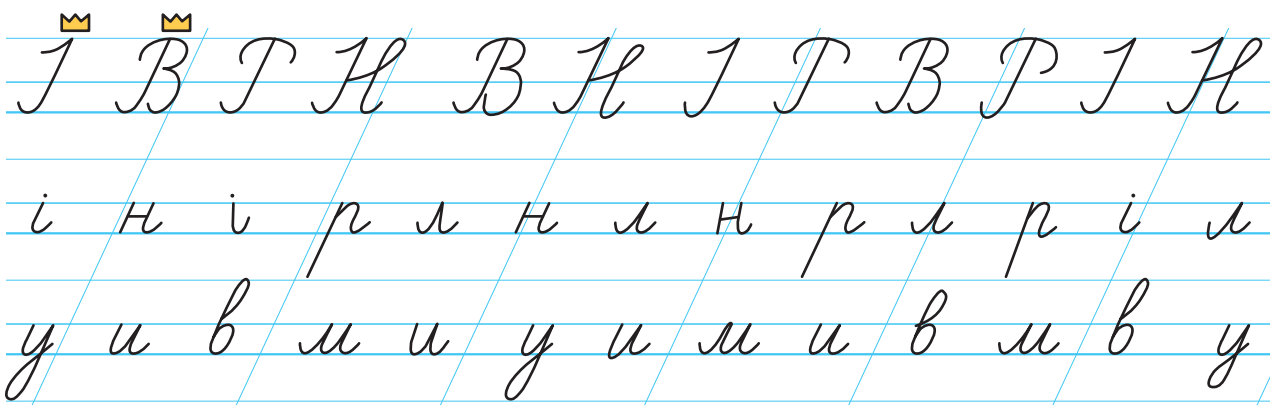 І В Г Н В Н І Г В Р І Н
і н і р л н л н р л р і л
у и в м и у и м и в м в у